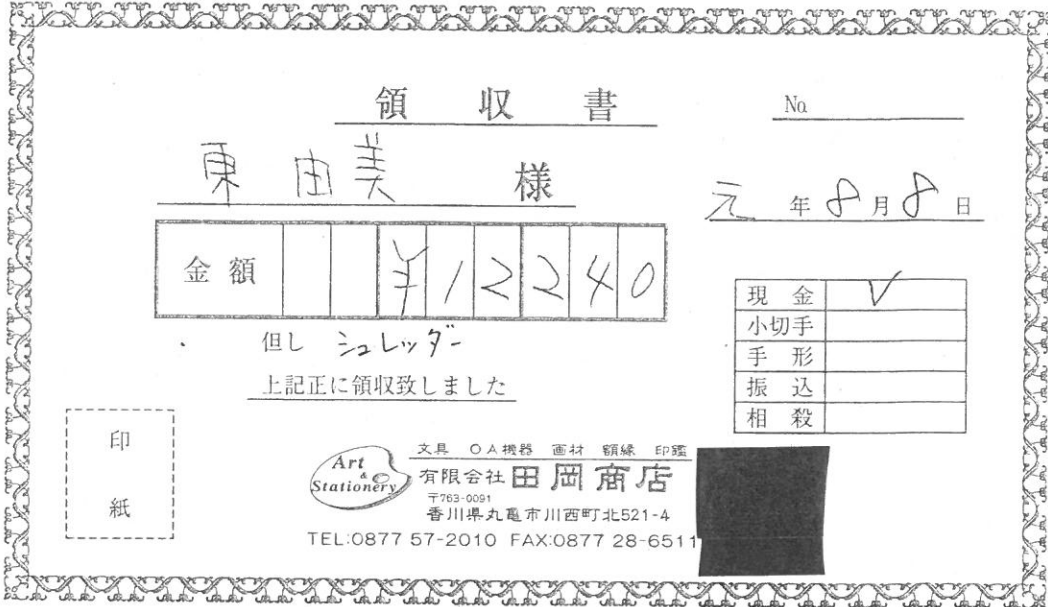 領収書
No.
東 由美 様
元年8月8日
金額 ¥12240
但し シュレッダー
上記正に領収致しました
現金 ✓
小切手
手形
振込
相殺
印紙
Art & Stationery
文具 OA機器 画材 額縁 印鑑
有限会社 田岡商店
〒763-0091
香川県丸亀市川西町北521-4
TEL:0877 57-2010 FAX:0877 28-6511